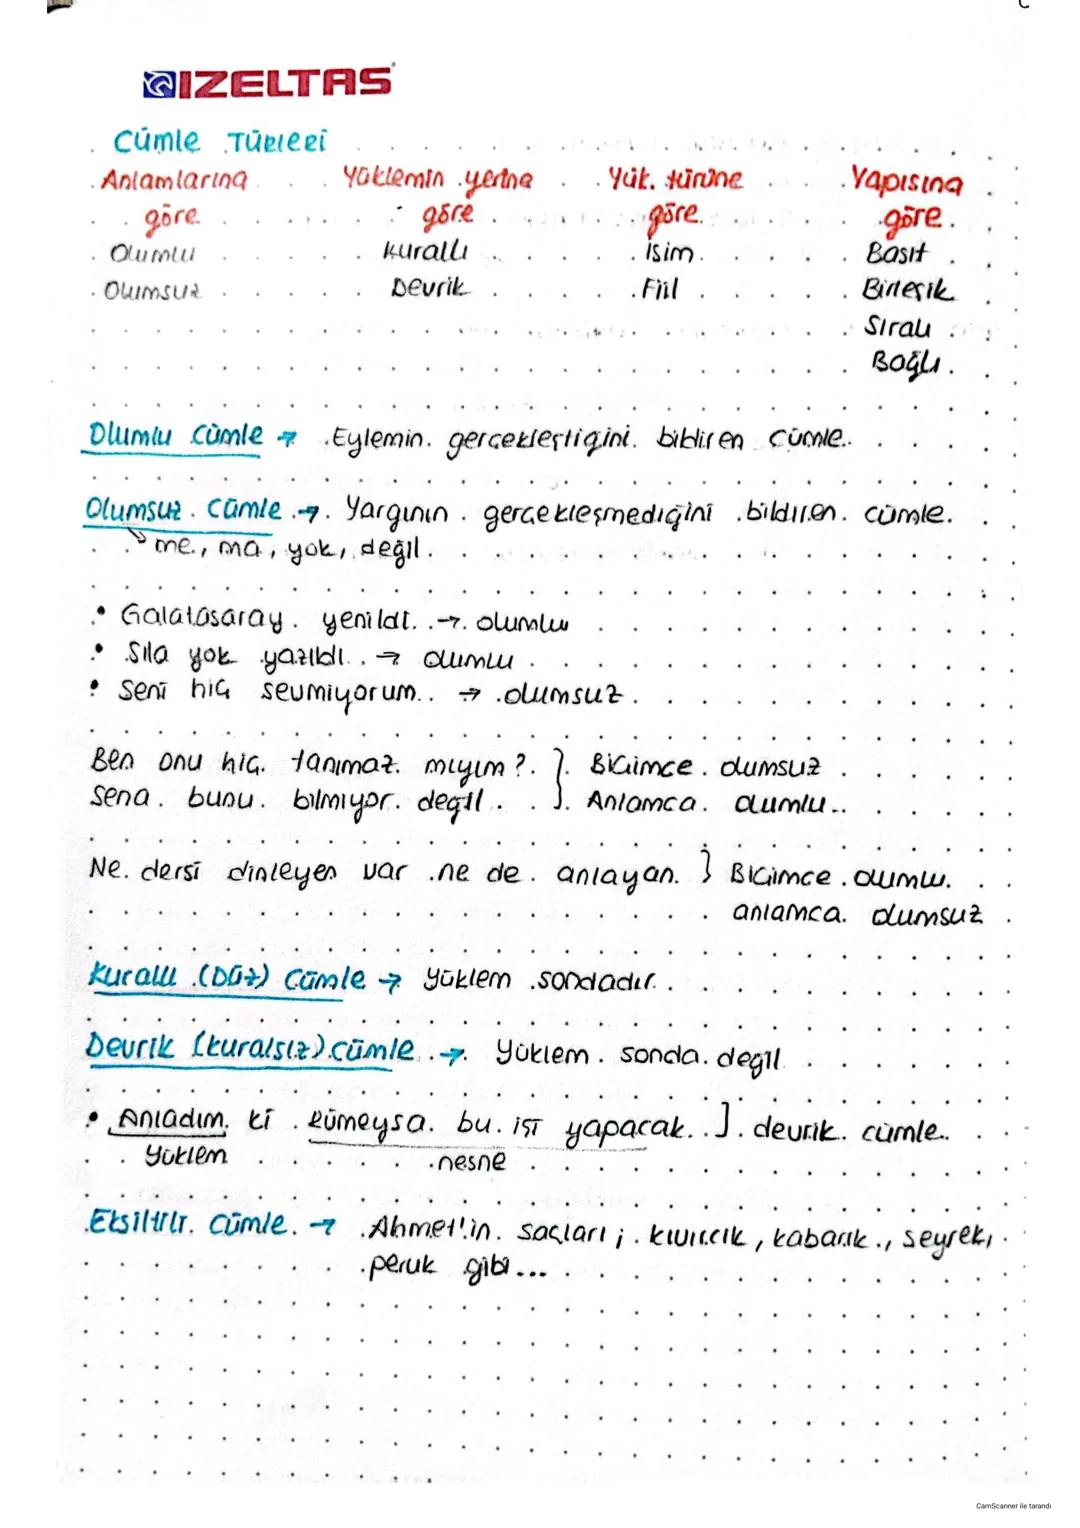 IZELTAS
Cümle Türleri
Anlamlarına Yüklemin yerine Yük. türüne Yapısına
göre göre göre göre
Olumlu Kurallı İsim Basit
Olumsuz Devrik Fiil Birleşik
Sıralı
Bağlı
Olumlu Cümle → Eylemin gerçekleştiğini bibliren cümle.
Olumsuz Cümle → Yargının gerçekleşmediğini bildiren cümle.
me, ma, yok, değil
• Galatasaray yenildi. → olumlu
• Sıla yok yazıldı. → olumlu
• Seni hiç sevmiyorum. → olumsuz
Ben onu hiç tanımaz mıyım? } Biçimce olumsuz
Sena bunu bilmiyor değil. } Anlamca olumlu.
Ne dersi dinleyen var ne de anlayan. } Biçimce olumlu.
anlamca olumsuz
Kurallı (Düz) Cümle → Yüklem sondadır.
Devrik (kuralsız) cümle → Yüklem sonda değil
• Anladım ki Rümeysa bu işi yapacak. ] devrik cümle.
Yüklem nesne
Eksiltili Cümle. → Ahmet'in saçları; kıvırcık, kabarık, seyrek,
peruk gibi...
CamScanner ile tarandı